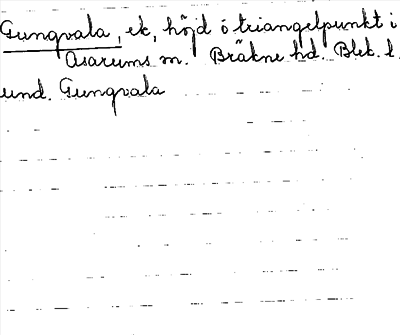 Gungvala, ek, höjd o triangelpunkt i
Asarums sn. Bräkne hd. Blek. l.
und. Gungvala